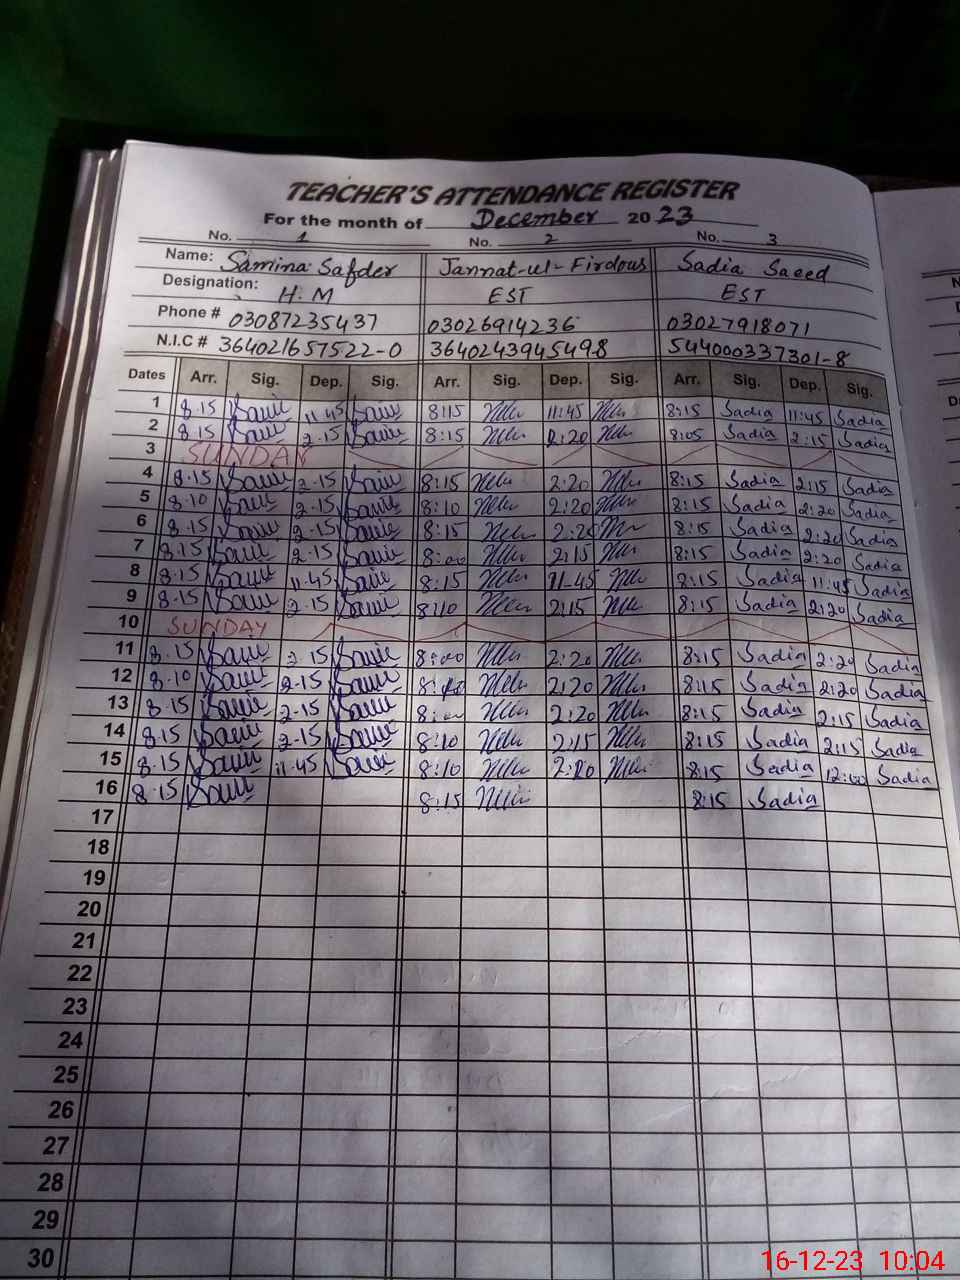 TEACHER'S ATTENDANCE REGISTER
For the month of December 2023
No. 1 No. 2 No. 3
Name: Samina Safder Jannat-ul-Firdous Sadia Saeed
Designation: H.M EST EST
Phone # 03087235437 03026914236 03027918071
N.I.C # 364021657522-0 3640243945498 544000337301-8
Dates Arr. Sig. Dep. Sig. Arr. Sig. Dep. Sig. Arr. Sig. Dep. Sig.
1 8.15 11.45 8:15 11:45 8:15 Sadia 11:45 Sadia
2 8.15 2.15 8:15 2:20 8:05 Sadia 2:15 Sadia
3 SUNDAY
4 8.15 2.15 8:15 2:20 8:15 Sadia 2:15 Sadia
5 8.10 2.15 8:10 2:20 8:15 Sadia 2:20 Sadia
6 8.15 2.15 8:15 2:20 8:15 Sadia 2:20 Sadia
7 8.15 2.15 8:00 2:15 8:15 Sadia 2:20 Sadia
8 8.15 11.45 8:15 11-45 8:15 Sadia 11:45 Sadia
9 8.15 2.15 8:10 2:15 8:15 Sadia 2:20 Sadia
10 SUNDAY
11 8.15 2.15 8:00 2:20 8:15 Sadia 2:20 Sadia
12 8.10 2.15 2:20 8:15 Sadia 2:20 Sadia
13 8.15 2.15 8:00 2:20 8:15 Sadia 2:15 Sadia
14 8.15 2.15 8:10 2:15 8:15 Sadia 2:15 Sadia
15 8.15 11.45 8:10 8:15 Sadia 12:00 Sadia
16 8.15 8:15 8:15 Sadia
17
18
19
20
21
22
23
24
25
26
27
28
29
30
16-12-23 10:04